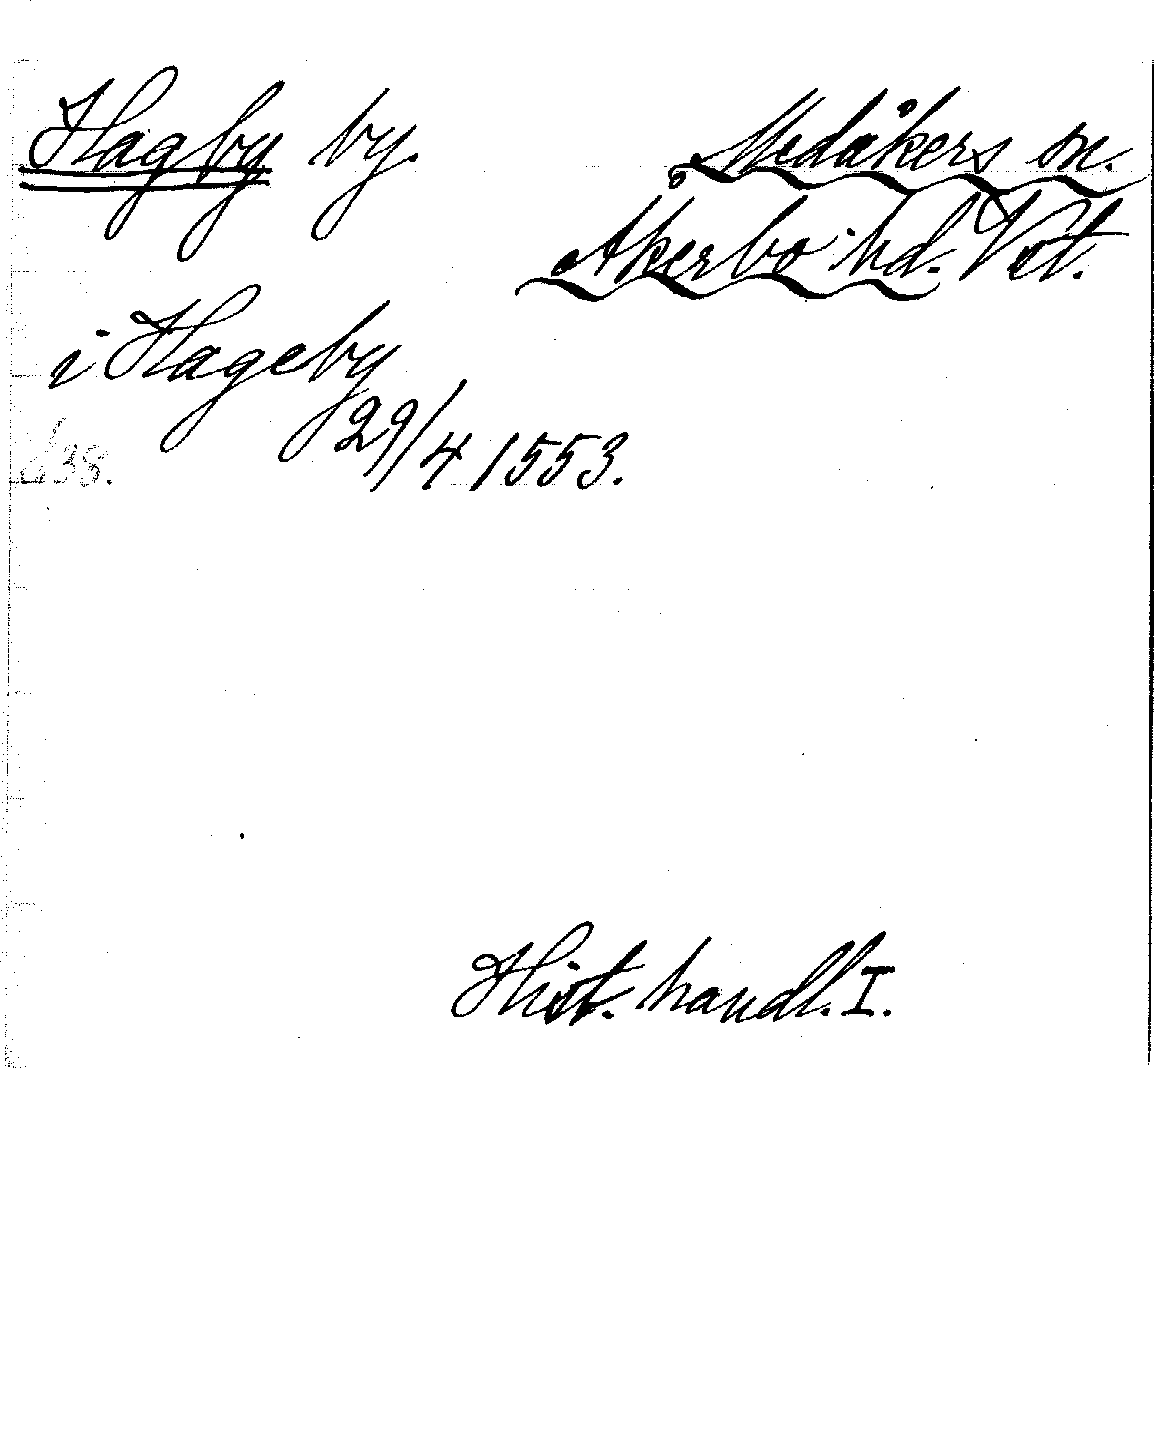 Hagby by.
Medåkers sn.
Åkerbo hd. Vst.
i Hageby
29/4 1553.
38.
Hist. handl. I.